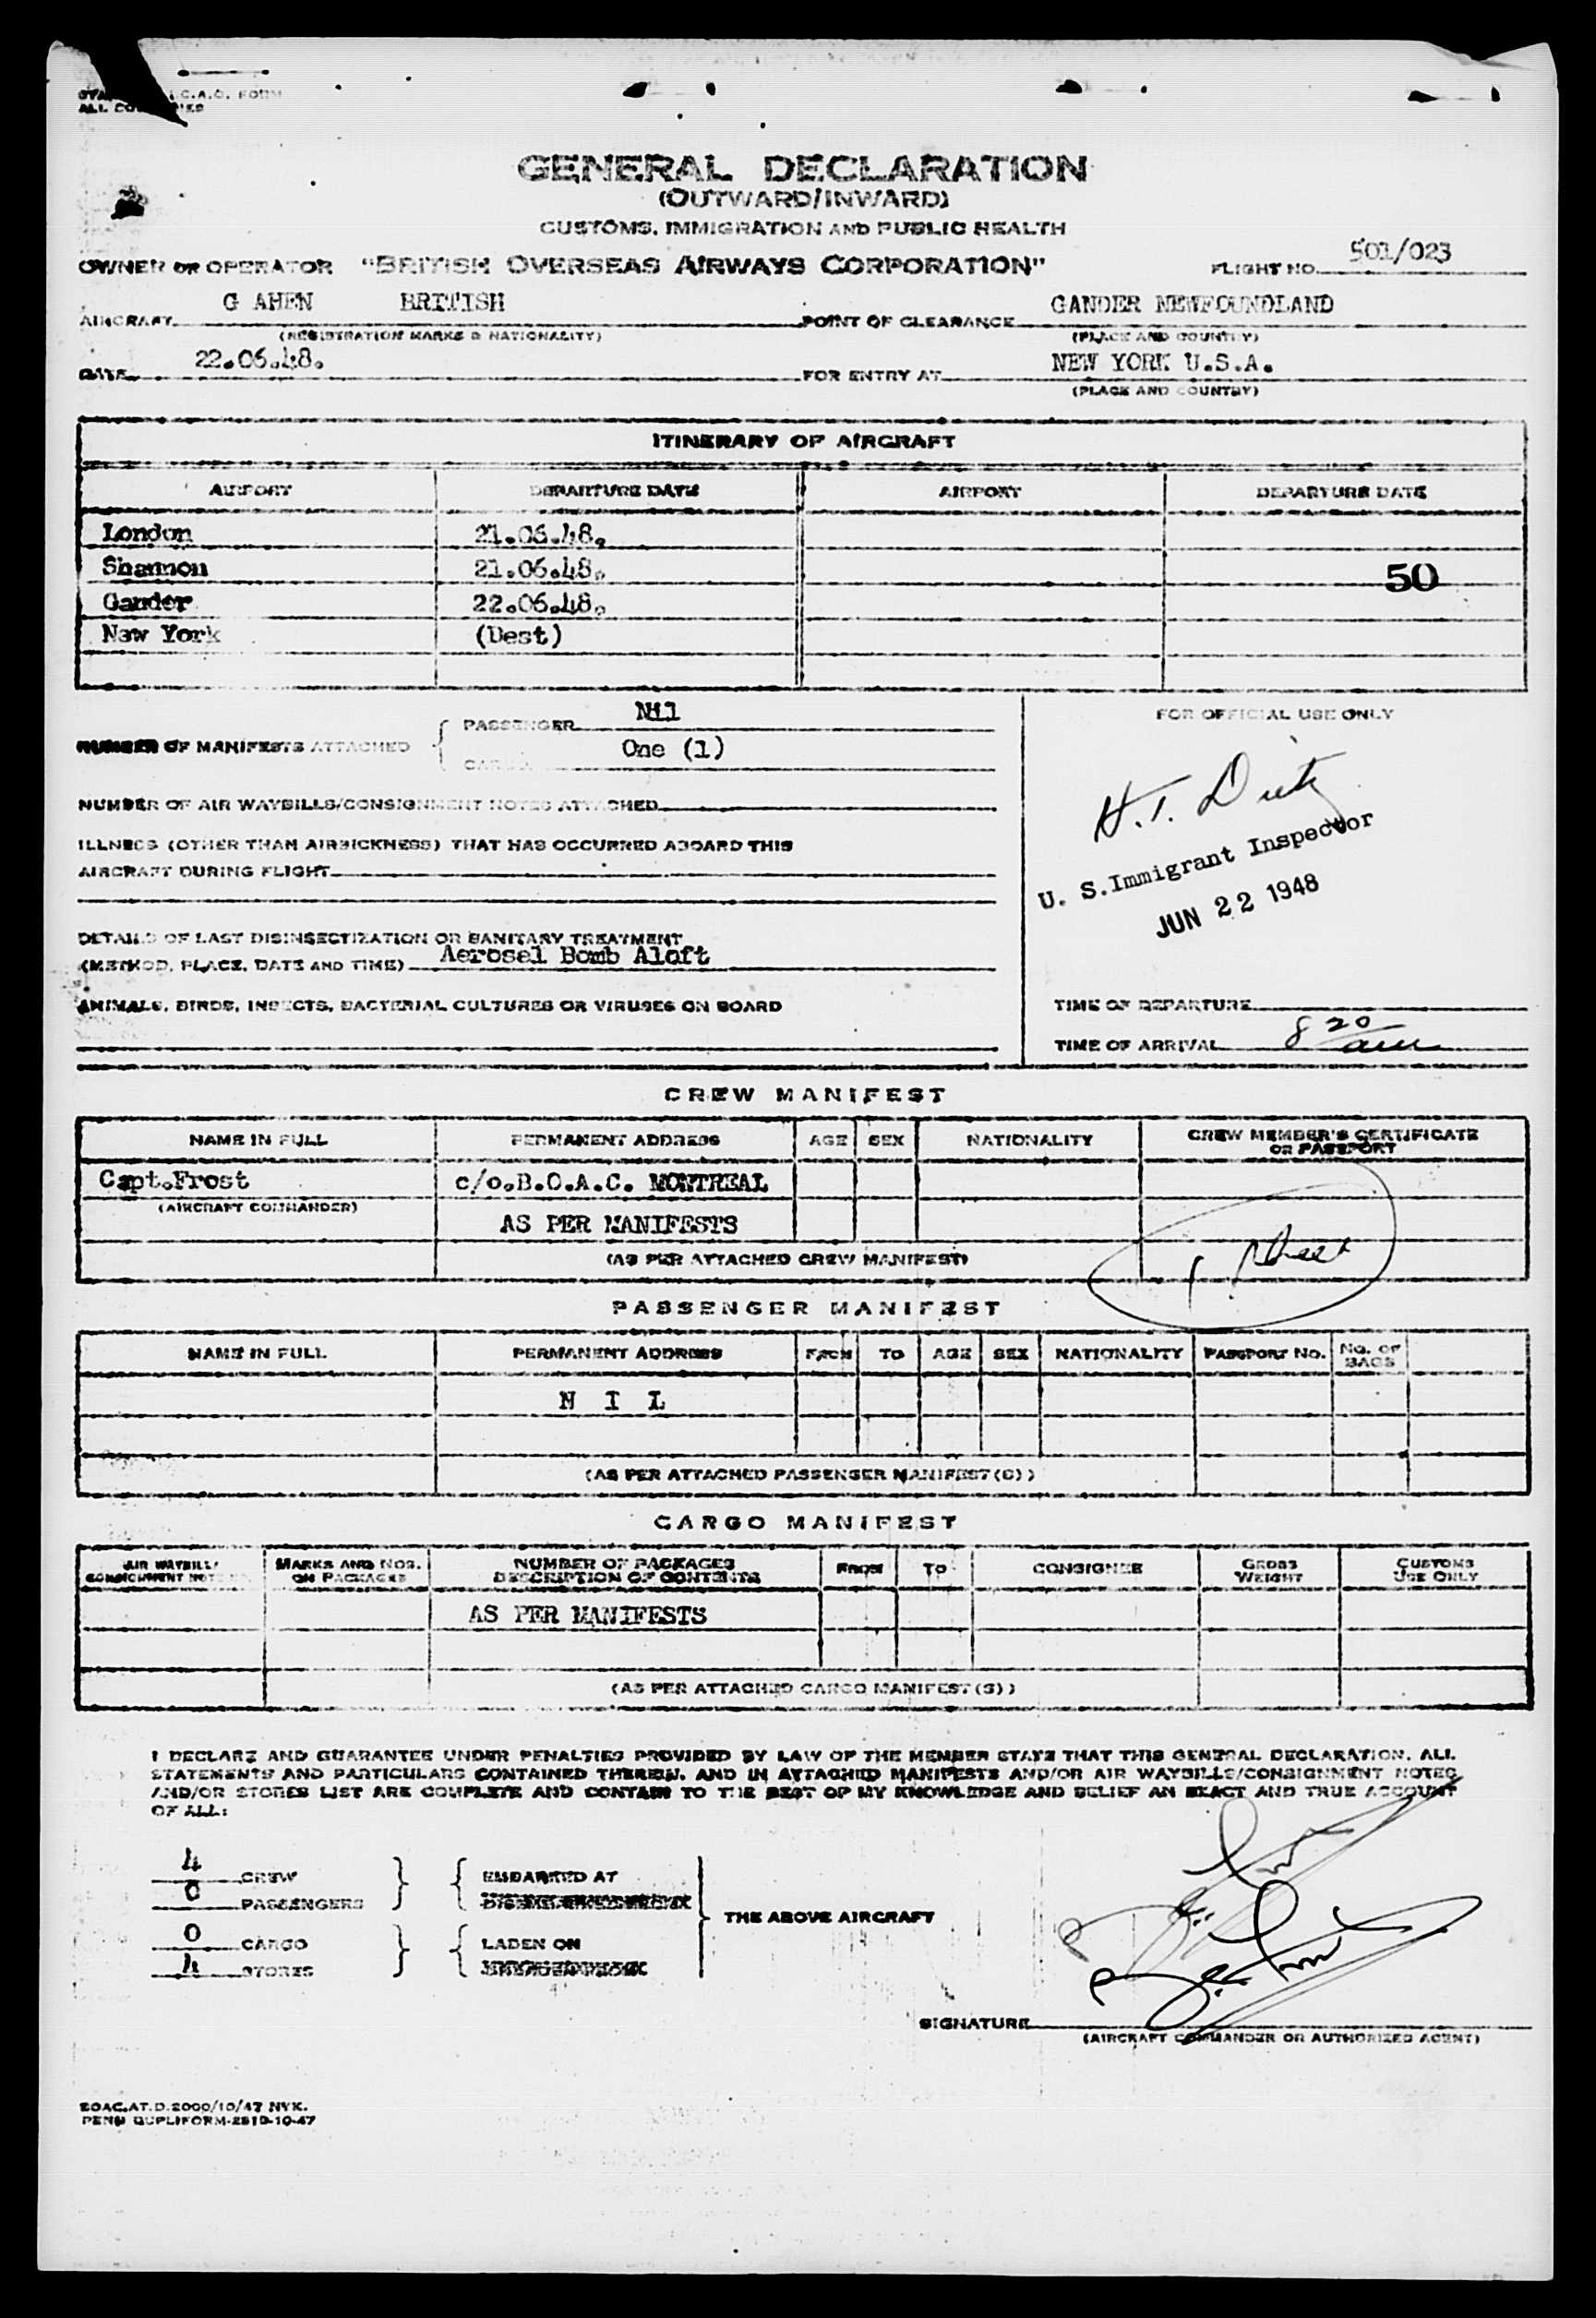 I.C.A.O. FORM
ALL
GENERAL DECLARATION
(OUTWARD/INWARD)
CUSTOMS, IMMIGRATION AND PUBLIC HEALTH
OWNER OR OPERATOR "BRITISH OVERSEAS AIRWAYS CORPORATION" FLIGHT NO. 501/023
AIRCRAFT G AHEN BRITISH POINT OF CLEARANCE GANDER NEWFOUNDLAND
(REGISTRATION MARKS & NATIONALITY) (PLACE AND COUNTRY)
DATE 22.06.48. FOR ENTRY AT NEW YORK U.S.A.
(PLACE AND COUNTRY)
ITINERARY OF AIRCRAFT
AIRPORT DEPARTURE DATE AIRPORT DEPARTURE DATE
London 21.06.48.
Shannon 21.06.48. 50
Gander 22.06.48.
New York (Dest)
PASSENGER Nil FOR OFFICIAL USE ONLY
NUMBER OF MANIFESTS ATTACHED
CARGO One (1)
NUMBER OF AIR WAYBILLS/CONSIGNMENT NOTES ATTACHED
H.T.
U. S. Immigrant Inspector
JUN 22 1948
ILLNESS (OTHER THAN AIRSICKNESS) THAT HAS OCCURRED ABOARD THIS
AIRCRAFT DURING FLIGHT
DETAILS OF LAST DISINSECTIZATION OR SANITARY TREATMENT
(METHOD, PLACE, DATE AND TIME) Aerosel Bomb Aloft
ANIMALS, BIRDS, INSECTS, BACTERIAL CULTURES OR VIRUSES ON BOARD
TIME OF DEPARTURE
TIME OF ARRIVAL 8 20 am
CREW MANIFEST
NAME IN FULL PERMANENT ADDRESS AGE SEX NATIONALITY CREW MEMBER'S CERTIFICATE
OR PASSPORT
Capt.Frost c/o.B.O.A.C. MONTREAL
(AIRCRAFT COMMANDER)
AS PER MANIFESTS
(AS PER ATTACHED CREW MANIFEST) 1 sheet
PASSENGER MANIFEST
NAME IN FULL PERMANENT ADDRESS FROM TO AGE SEX NATIONALITY PASSPORT NO. NO. OF
BAGS
N I L
(AS PER ATTACHED PASSENGER MANIFEST(S))
CARGO MANIFEST
AIR WAYBILL/ MARKS AND NOS. NUMBER OF PACKAGES FROM TO CONSIGNEE GROSS CUSTOMS
CONSIGNMENT NOTE ON PACKAGES DESCRIPTION OF CONTENTS WEIGHT USE ONLY
AS PER MANIFESTS
(AS PER ATTACHED CARGO MANIFEST(S))
I DECLARE AND GUARANTEE UNDER PENALTIES PROVIDED BY LAW OF THE MEMBER STATE THAT THIS GENERAL DECLARATION, ALL
STATEMENTS AND PARTICULARS CONTAINED THEREIN, AND IN ATTACHED MANIFESTS AND/OR AIR WAYBILLS/CONSIGNMENT NOTES
AND/OR STORES LIST ARE COMPLETE AND CONTAIN TO THE BEST OF MY KNOWLEDGE AND BELIEF AN EXACT AND TRUE ACCOUNT
OF ALL:
4 CREW EMBARKED AT
0 PASSENGERS
THE ABOVE AIRCRAFT
0 CARGO LADEN ON
4 STORES
SIGNATURE
(AIRCRAFT COMMANDER OR AUTHORIZED AGENT)
BOAC.AT.D.2000/10/47 NYK.
PENN DUPLIFORM-2810-10-47